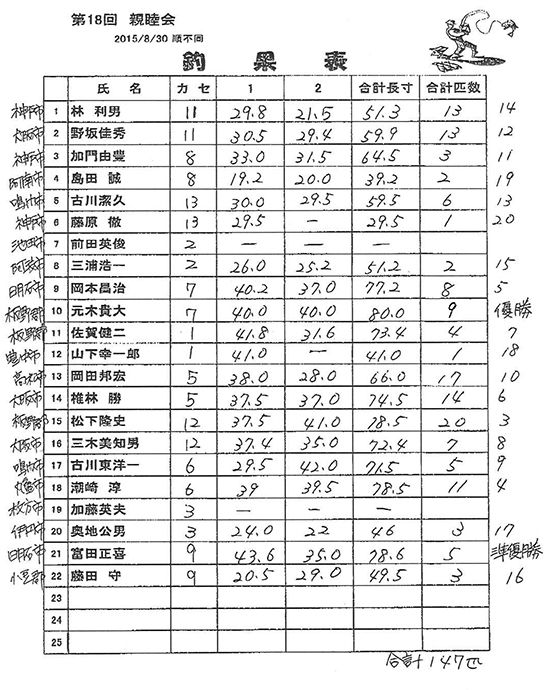 第18回 親睦会
2015/8/30 順不同
釣果表
氏名 カセ 1 2 合計長寸 合計匹数
神戸市 1 林 利男 11 29.8 21.5 51.3 13 14
大阪市 2 野坂佳秀 11 30.5 29.4 59.9 13 12
神戸市 3 加門由豊 8 33.0 31.5 64.5 3 11
阿南市 4 島田 誠 8 19.2 20.0 39.2 2 19
鳴門市 5 古川潔久 13 30.0 29.5 59.5 6 13
神戸市 6 藤原 徹 13 29.5 - 29.5 1 20
池田市 7 前田英俊 2 - - -
8 三浦浩一 2 26.0 25.2 51.2 2 15
明石市 9 岡本昌治 7 40.2 37.0 77.2 8 5
板野郡 10 元木貴大 7 40.0 40.0 80.0 9 優勝
板野郡 11 佐賀健二 1 41.8 31.6 73.4 4 7
豊中市 12 山下幸一郎 1 41.0 - 41.0 1 18
高松市 13 岡田邦宏 5 38.0 28.0 66.0 17 10
大阪市 14 椎林 勝 5 37.5 37.0 74.5 14 6
板野郡 15 松下隆史 12 37.5 41.0 78.5 20 3
大阪市 16 三木美知男 12 37.4 35.0 72.4 7 8
鳴門市 17 古川東洋一 6 29.5 42.0 71.5 5 9
丸亀市 18 潮崎 淳 6 39 39.5 78.5 11 4
枚方市 19 加藤英夫 3 - - -
伊丹市 20 奥地公男 3 24.0 22 46 3 17
明石市 21 富田正喜 9 43.6 35.0 78.6 5 準優勝
小豆郡 22 藤田 守 9 20.5 29.0 49.5 3 16
23
24
25
合計 147匹